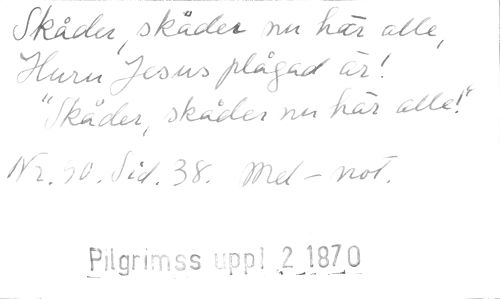 Skåder, skåder nu här alle,
Huru Jesus plågad är!
"Skåder, skåder nu här alle!"
Nr. 50. Sid. 38. Mel-not.
Pilgrimss uppl 2 1870